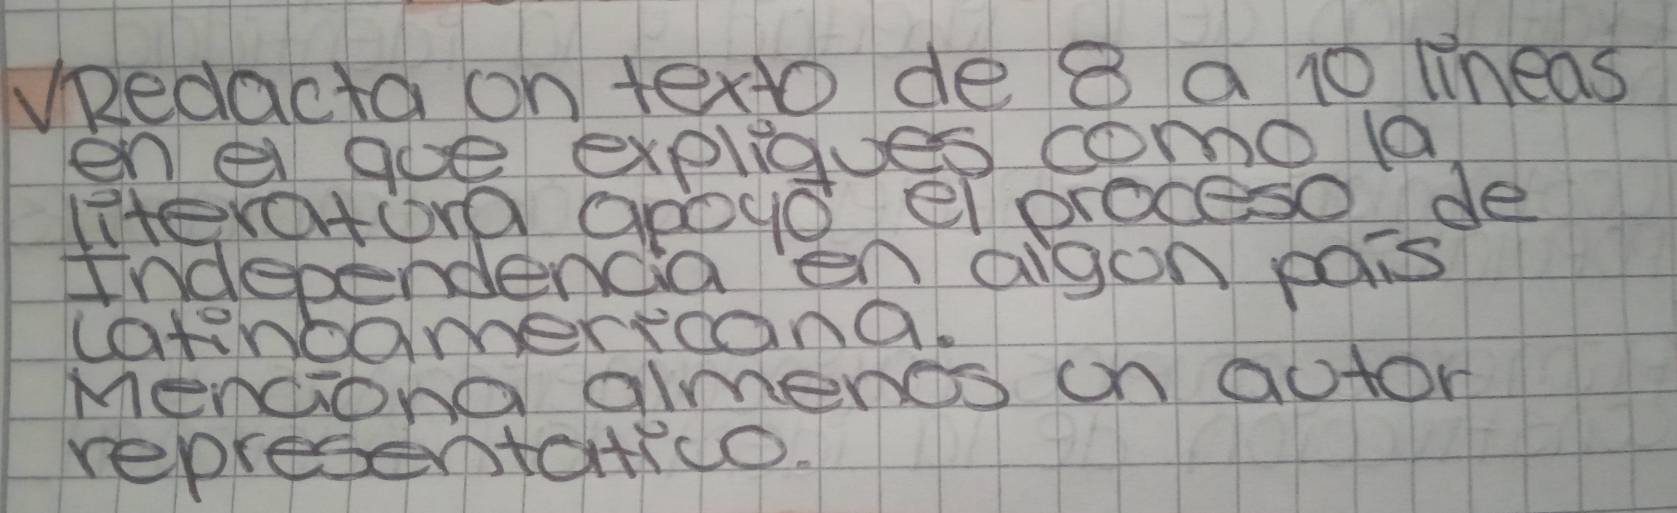 √Redacta un texto de 8 a 10 líneas
en el que expliques como la
literatura apoyó el proceso de
Independencia en algun país
Latinoamericana.
Menciona almenos un autor
representatico.